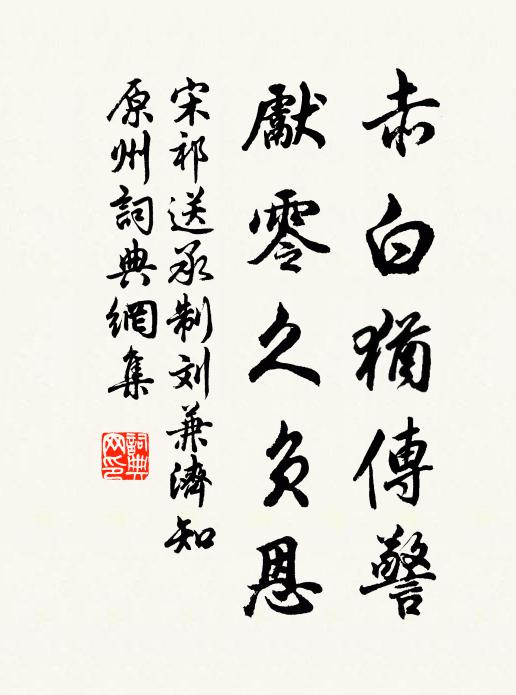 赤白猶傳警
獻零久負恩
宋祁送承制刘兼濟知
原州詞典網集
詞典
网印